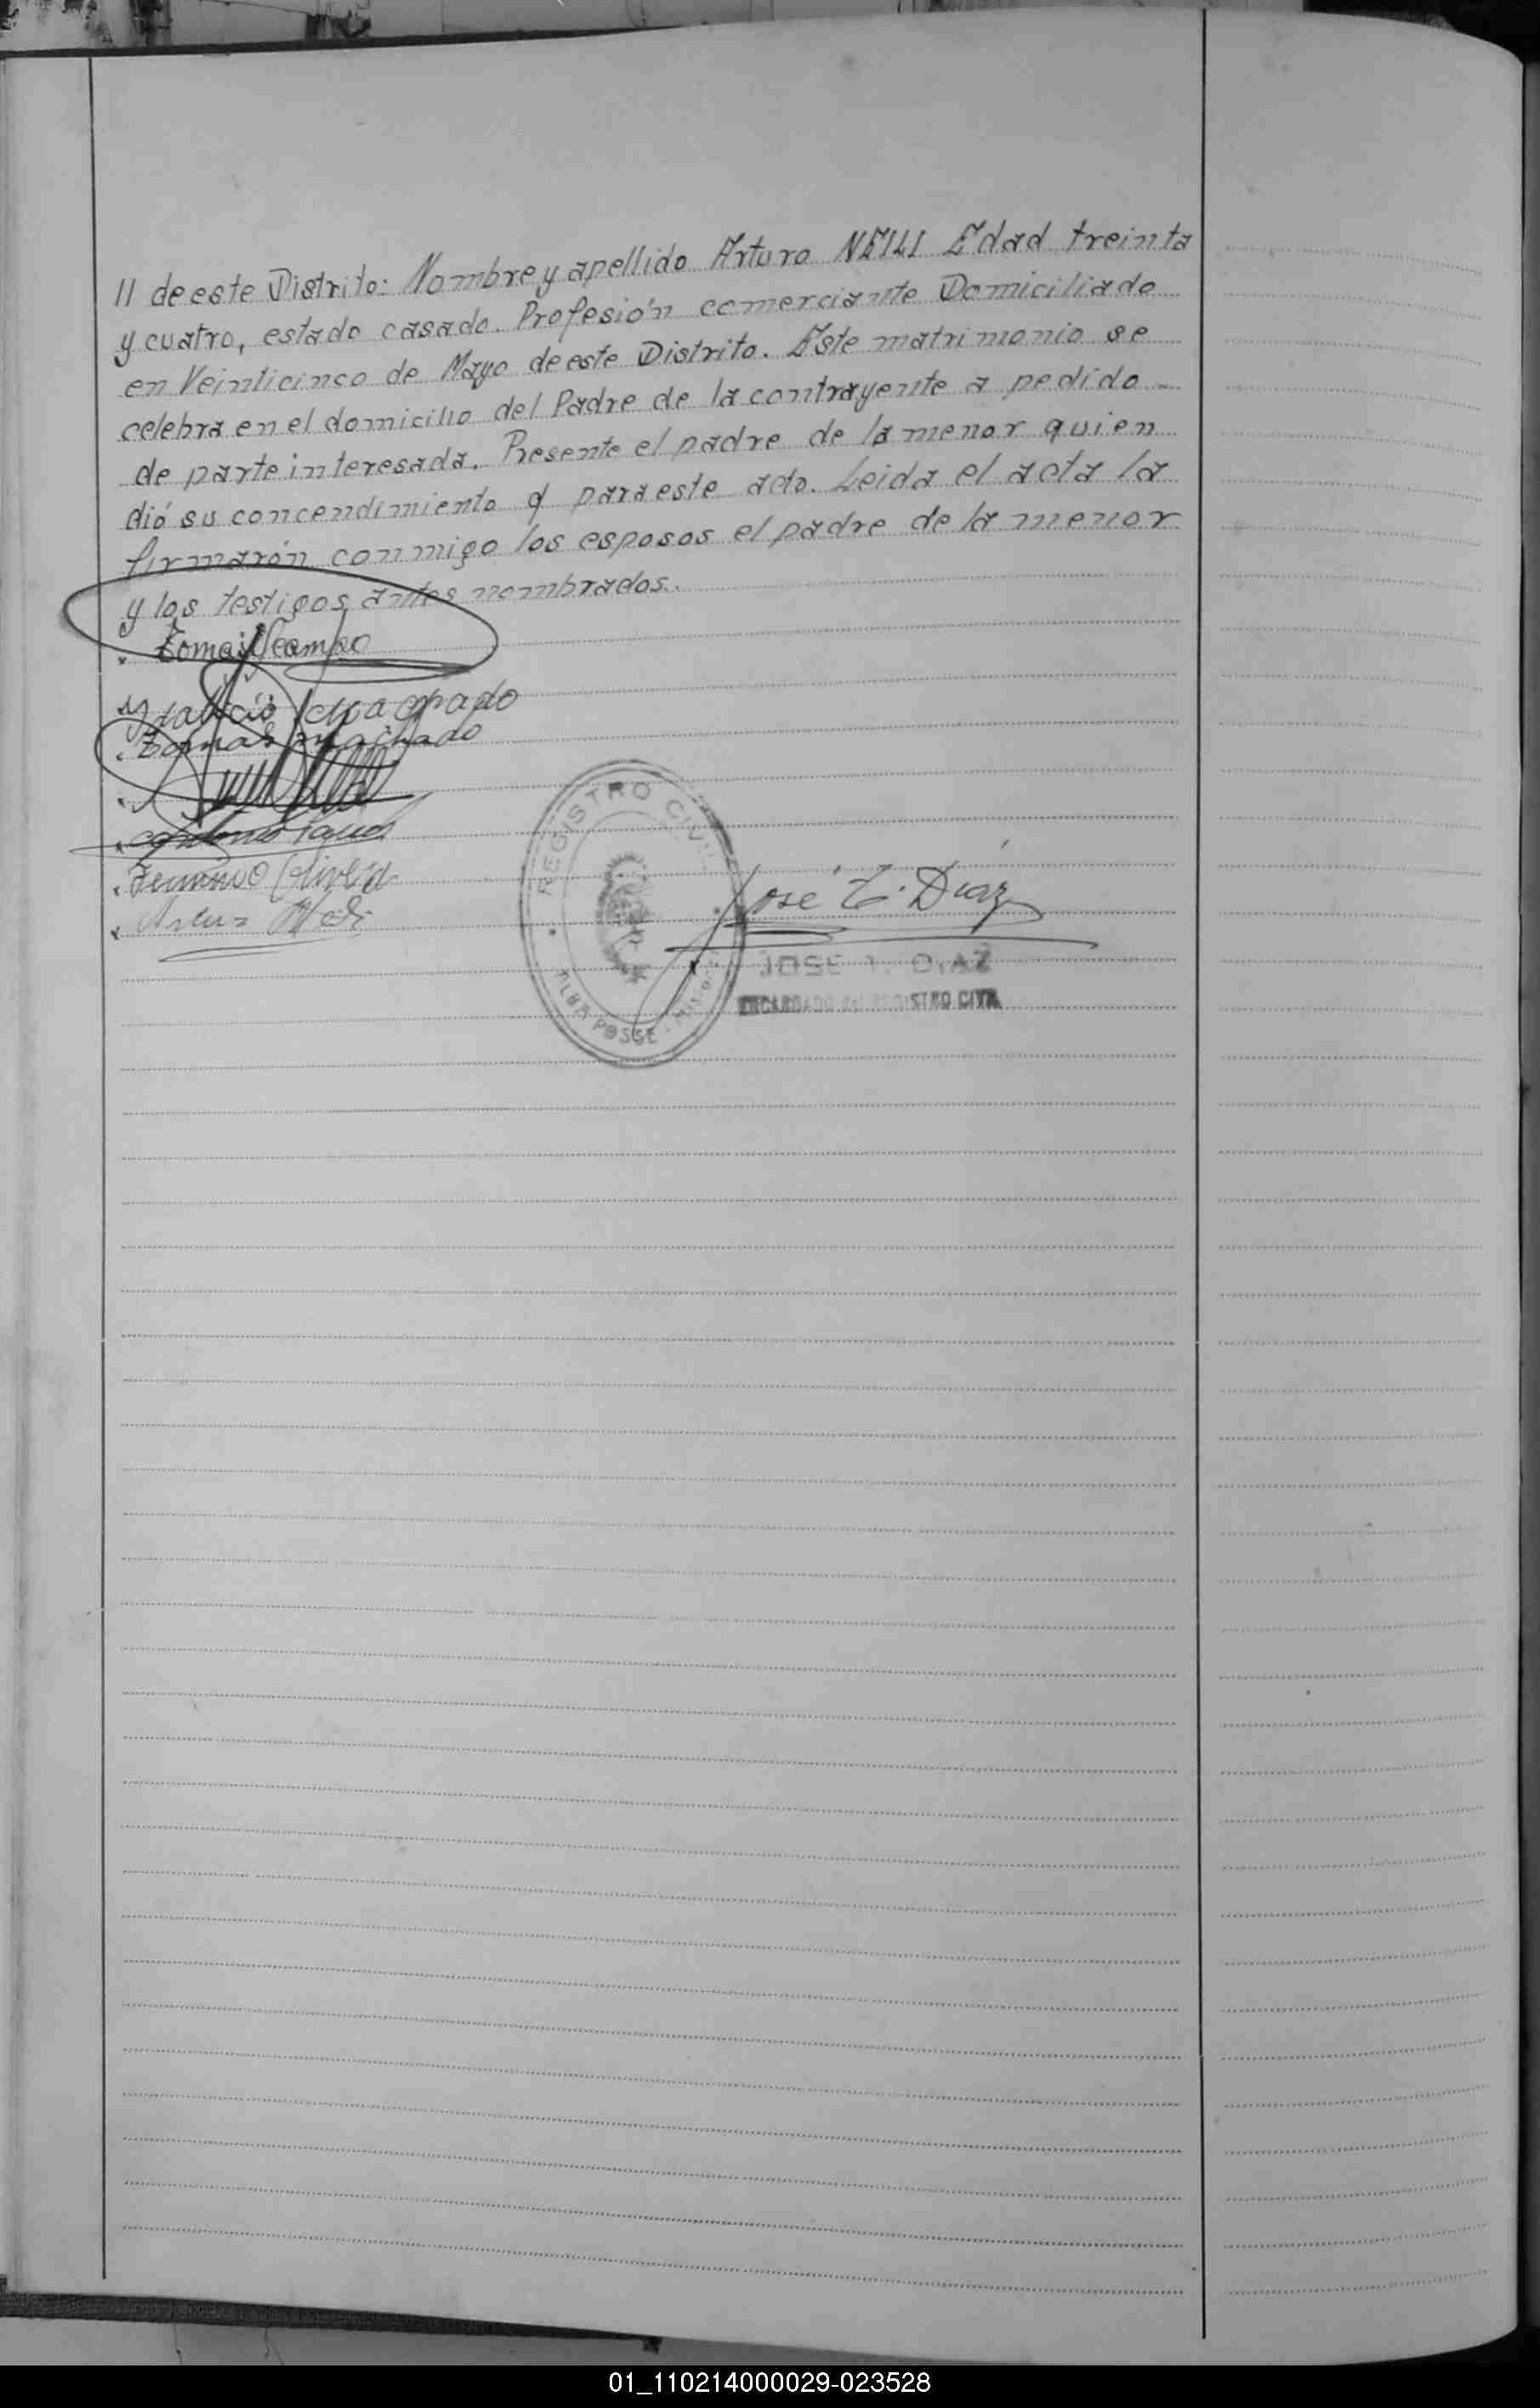 11 de este Distrito: Nombre y apellido Arturo NEILI Edad treinta
y cuatro, estado casado. Profesión comerciante Domiciliado
en Veinticinco de Mayo de este Distrito. Este matrimonio se
celebra en el domicilio del Padre de la contrayente a pedido
de parte interesada. Presente el padre de la menor quien
dió su concendimiento para este acto. Leida el acta la
firmarón conmigo los esposos el padre de la menor
y los testigos antes nombrados.
Tomas Ocampo
Machado
Tomas Machado
Antonio
REGISTRO CIVIL
ALBA POSSE
José T. Diaz
JOSE T. DIAZ
ENCARGADO del REGISTRO CIVIL
01_110214000029-023528